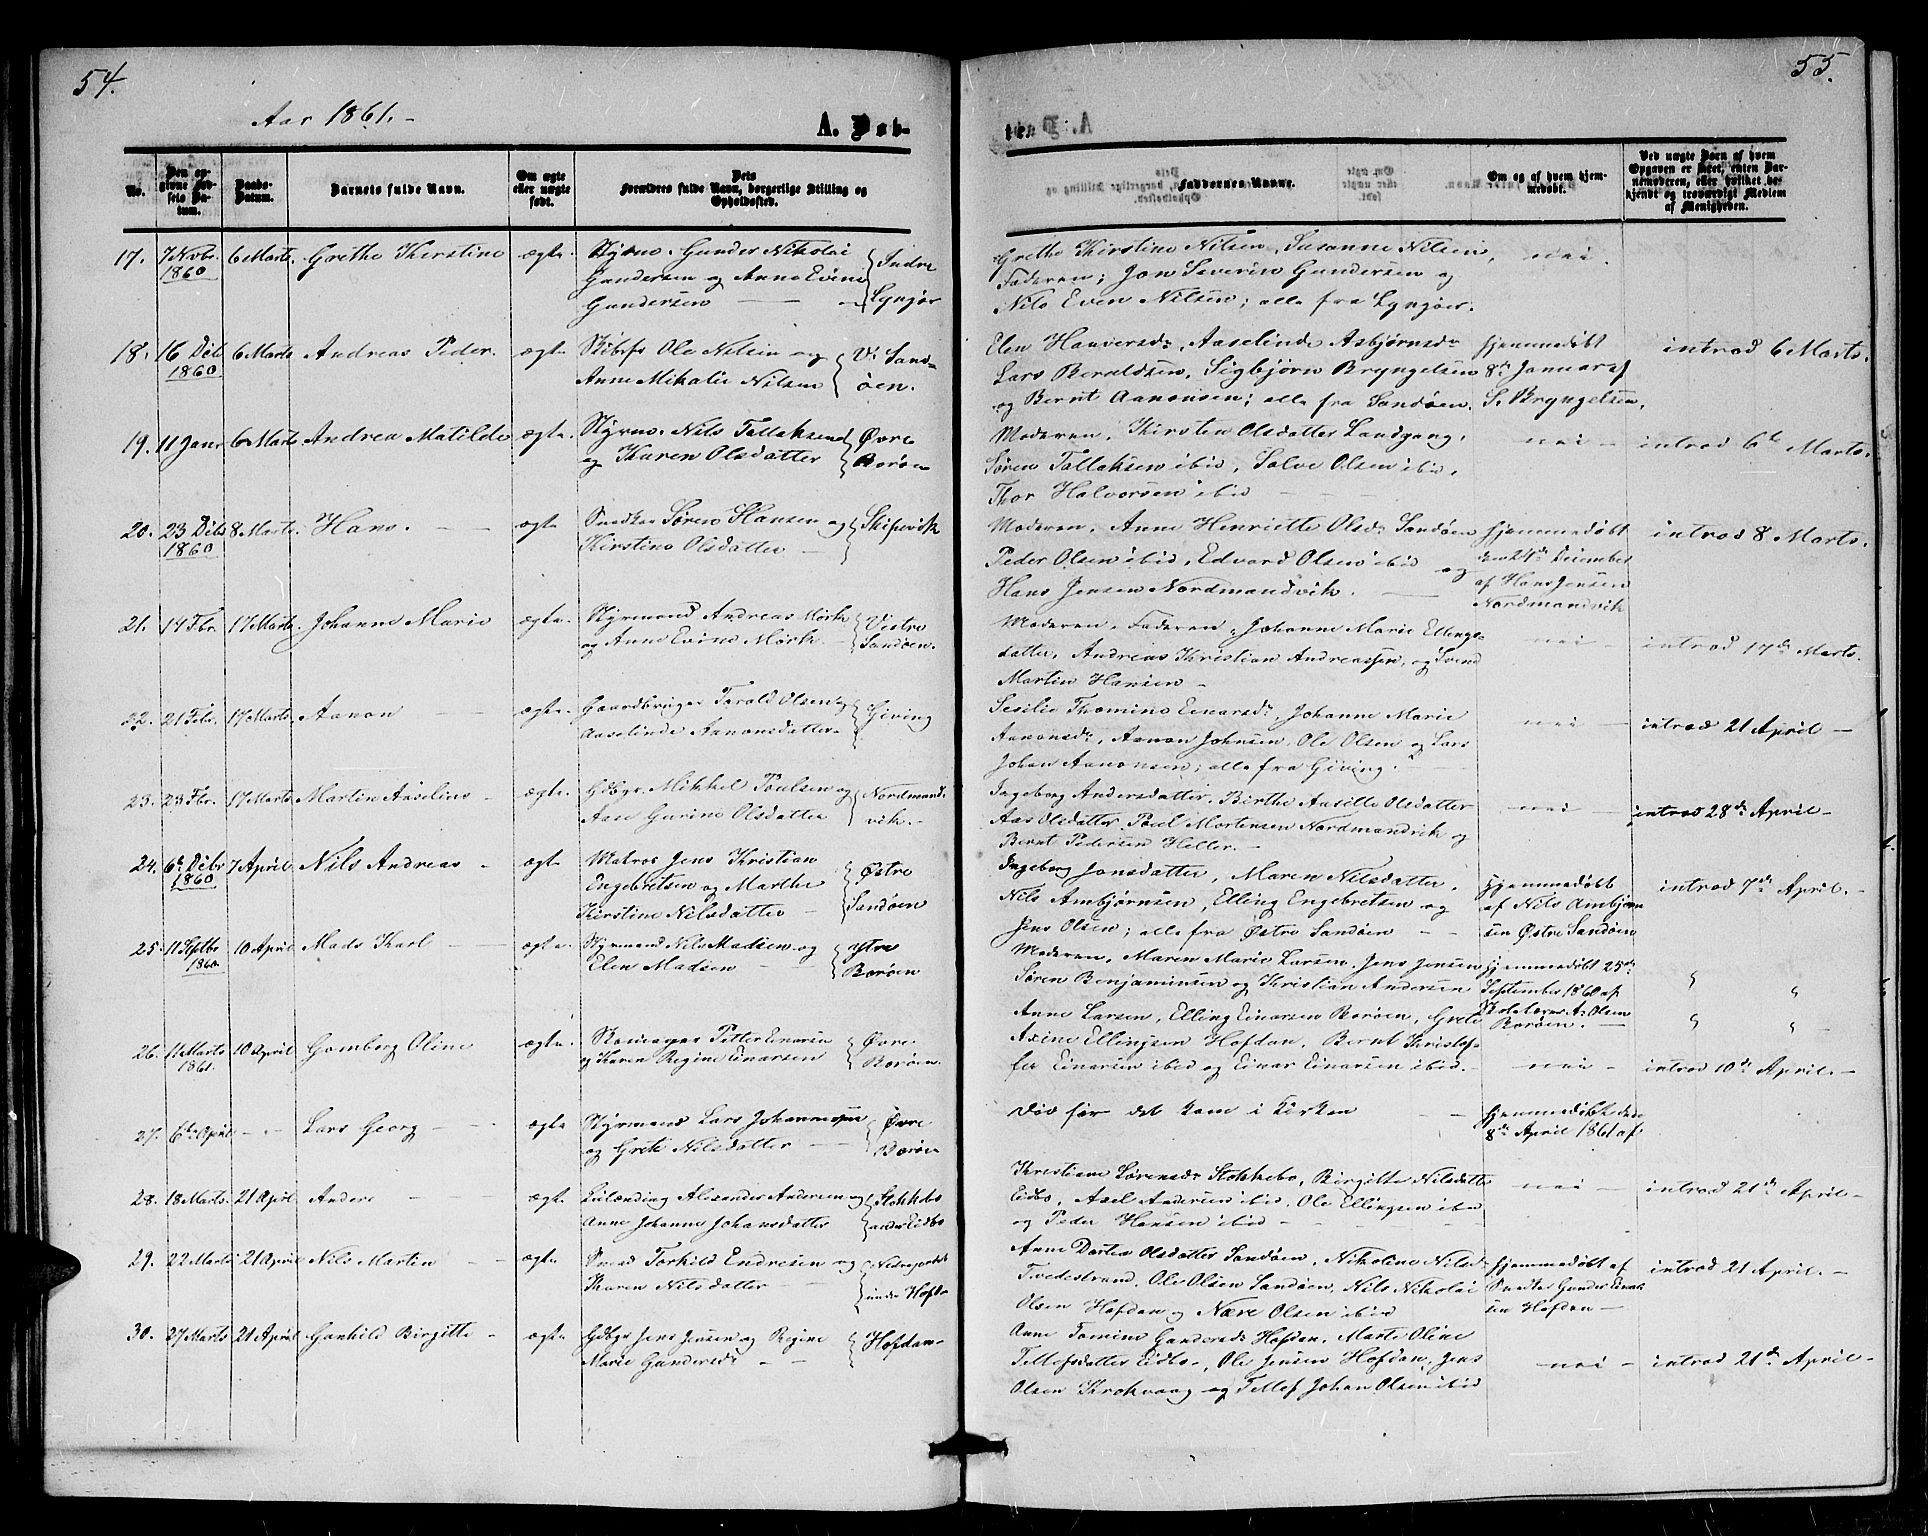 54.
Aar 1861.-
A. Døb-
No.
Den op-
givne Fød-
sels Da-
tum.
Daabs-
Datum.
Barnets fulde Navn.
Om ægte
eller uægte
født.
Dets
Forældres fulde Navn, borgerlige Stilling og
Opholdssted.
17. 7 Novbr. 6 Marts. Grethe Kirstine ægte. Styrm. Gunder Nikolai Indre
1860 Gundersen og Anne Evine
Gundersen — Lyngør
18. 16 Dcb 6 Marts Andreas Peder. ægte Skibsfr Ole Nilsen og V. Sand-
1860 Anne Mikalie Nilsen øen.
19. 11 Janr 6 Marts Andrea Matilde ægte. Styrm. Nils Tallaksen Øvre
og Karen Olsdatter Borøen
20. 23 Dcb 8 Marts. Hans. ægte Snedker Søren Hansen og Skipsvik
1860 Kirstine Olsdatter —
21. 14 Fbr. 17 Marts. Johanne Marie ægte. Styrmand Andreas Mørk Vestre
og Anne Evine Mørk. Sandøen.
22. 21 Febr. 17 Marts. Aanon ægte. Gaardbruger Tarald Olsen og Giving
Aaselinde Aanonsdatter.
23. 23 Fbr. 17 Marts Martin Aaselius ægte. Gdbgr. Mikkel Poulsen og Nordmand-
Aase Gurine Olsdatter vik.-
24. 6te Dcbr 7 April Nils Andreas ægte Matros Jens Kristian Østre
1860 Engebretsen og Marthe
Kirstine Nilsdatter — Sandøen
25. 11 Septbr 10 April Mads Karl ægte. Styrmand Nils Madsen og ytre
1860 Elen Madsen Borøen
26. 11 Marts 10 April Gomborg Oline ægte. Petter Einarsen Øvre
1861. og Karen Regine Einarsen Borøen.
27. 6te April - - Lars Georg ægte Styrmand Lars Johannesen Øvre
og Grete Nilsdatter Borøen
28. 18 Marts. 21 April Anders ægte Leilænding Alexander Andersen og Stokkebo
Anne Johanne Johansdatter under Eidbo
29. 22 Marts 21 April Nils Martin ægte. Smed Torkild Endresen og
Karen Nilsdatter under Hofdan
30. 27 Marts 21 April Gunhild Birgitte ægte. Gdbgr Jens Jensen og Regine Hofdan-
Marie Gundersdr
55.
Faddernes Navne.
Om og af hvem hjem-
medøbt.
Ved uægte Børn af hvem
Opgaven er skeet, enten Bar-
nemoderen, eller hvilket be-
kjendt og troværdigt Medlem
af Menigheden.
Grethe Kirstine Nilsen, Susanne Nilsen, nei.
Faderen; Jon Severin Gundersen og
Nils Even Nilsen; alle fra Lyngøer.
Elen Haaversdr, Aaselinde Asbjørnsdr hjemmedøbt introd 6 Marts.
Lars Beraldsen, Sigbjørn Bryngelsen 8de Januar af
og Bernt Aanonsen; alle fra Sandøen. S. Bryngelsen.
Moderen, Kirsten Olsdatter Landgang, nei introd 6te Marts.
Søren Tallaksen ibid, Salve Olsen ibid,
Thor Halvorsen ibid
Moderen, Anne Henriette Olsdr Sandøen hjemmedøbt introd 8 Marts.
Peder Olsen ibid, Edvard Olsen ibid og den 24de December
Hans Jensen Nordmandvik. af Hans Jensen
Nordmandvik
Moderen, Faderen, Johanne Marie Ellings-
datter, Andreas Kristian Andreassen, og Svend nei introd 17de Marts.
Martin Hansen -
Sesilie Thomine Einarsdr, Johanne Marie
Aanonsdr, Aanon Johnsen, Ole Olsen og Lars nei introd 21 April -
Johan Aanonsen; alle fra Giving.
Ingeborg Andersdatter, Birthe Olsdatter
Aas Olsdatter, Poul Mortensen Nordmandvik og nei introd 28de April -
Bernt Pedersen Heller.-
Ingeborg Jonsdatter, Maren Nilsdatter, hjemmedøbt introd 7de April. -
Nils Ambjørnsen, Elling Engebretsen og af Nils Ambjørn
Jens Olsen; alle fra Østre Sandøen sen Østre Sandøen
Moderen, Maren Marie Larsen, Jens Jensen hjemmedøbt 25de
Søren Benjaminsen og Kristian Andersen September 1860 af
Anne Larsen, Elling Einarsen Borøen, Grete Skolelærer A. Olsen
Axine Ellingsen Hofdan, Bernt Kristof- Borøen.
fer Einarsen ibid og Einar Einarsen ibid. nei introd 10de April. -
Død før det kom i Kirken hjemmedøbt den
8de April 1861 af
Kristiane Sørensdr Stokkebo, Birgitte Nilsdatter nei introd 21de April -
Eidbo, Axel Andersen ibid, Ole Ellingsen ibid
og Peder Hansen ibid
Anne Dortea Olsdatter Sandøen, Nikoline Nilsdr hjemmedøbt af introd 21 April. -
Tvedestrand, Ole Olsen Sandøen, Nils Nikolai Gunder Einar
Olsen Hofdan og Nære Olsen ibid sen Hofdan
Anne Tomine Gundersdr Hofdan, Marte Oline
Tellefsdatter Eidbo, Ole Jensen Hofdan, Jens nei introd 21de April -
Olsen Krokvaag og Tellef Johan Olsen ibid